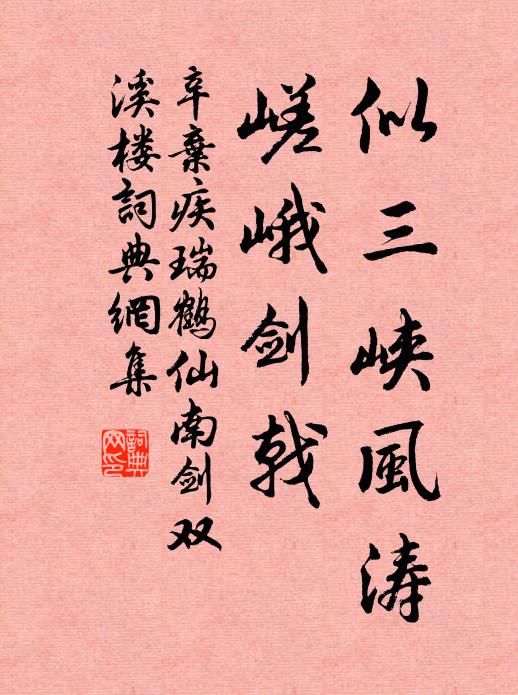 似三峡風涛
嵯峨剑戟
辛棄疾瑞鶴仙南剑双
溪楼詞典網集
詞典网印